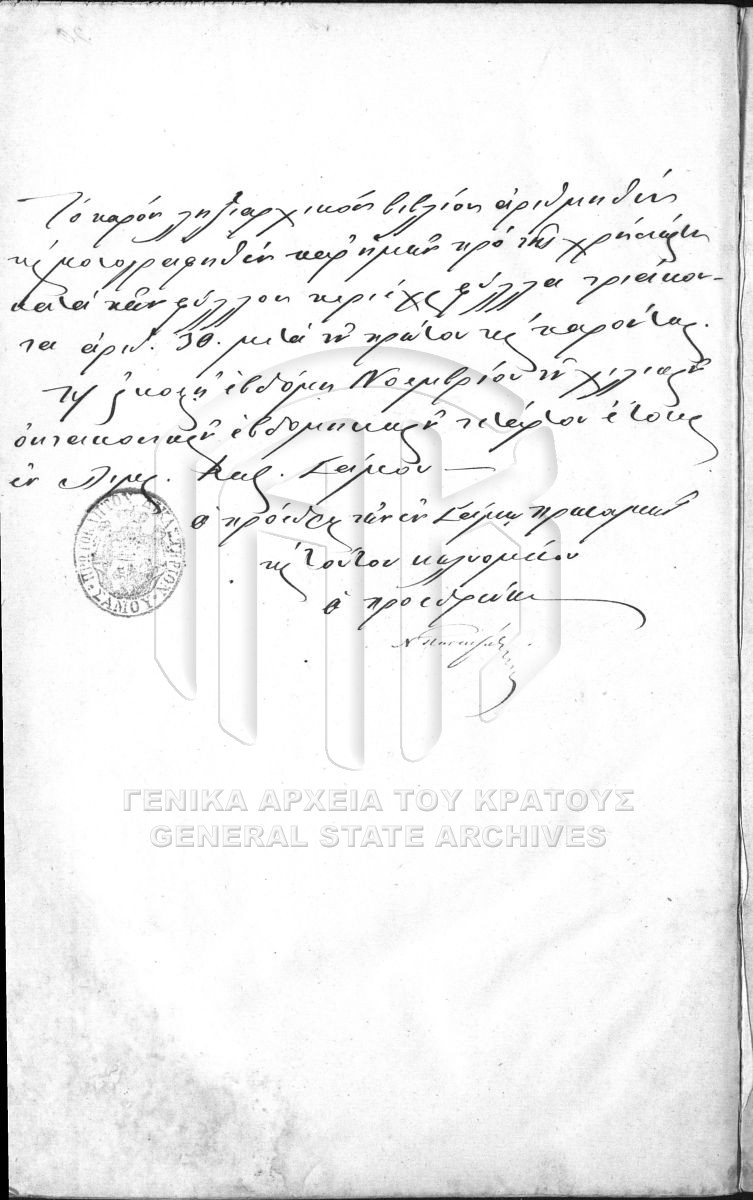 Τὸ παρὸν ληξιαρχικὸν βιβλίον ἀριθμηθὲν
καὶ μονογραφηθὲν παρ' ἡμῶν πρὸ τῆς χρήσεως
κατὰ πᾶν φύλλον περιέχει φύλλα τριάκον-
τα ἀριθ. 30. μετὰ τοῦ πρώτου τῆς παρούσης.
Τῇ εἰκοστῇ ἑβδόμῃ Νοεμβρίου τοῦ χιλιοστοῦ
ὀκτακοσιοστοῦ ἑβδομηκοστοῦ τετάρτου ἔτους
ἐν Λιμ. Βαθ. Σάμου
ὁ πρόεδρος τῶν ἐν Σάμῳ Πρωτοδικῶν
καὶ τούτου κωλυομένου
ὁ προεδρεύων
Ν
ΣΑΜΟΥ
ΓΕΝΙΚΑ ΑΡΧΕΙΑ ΤΟΥ ΚΡΑΤΟΥΣ
GENERAL STATE ARCHIVES